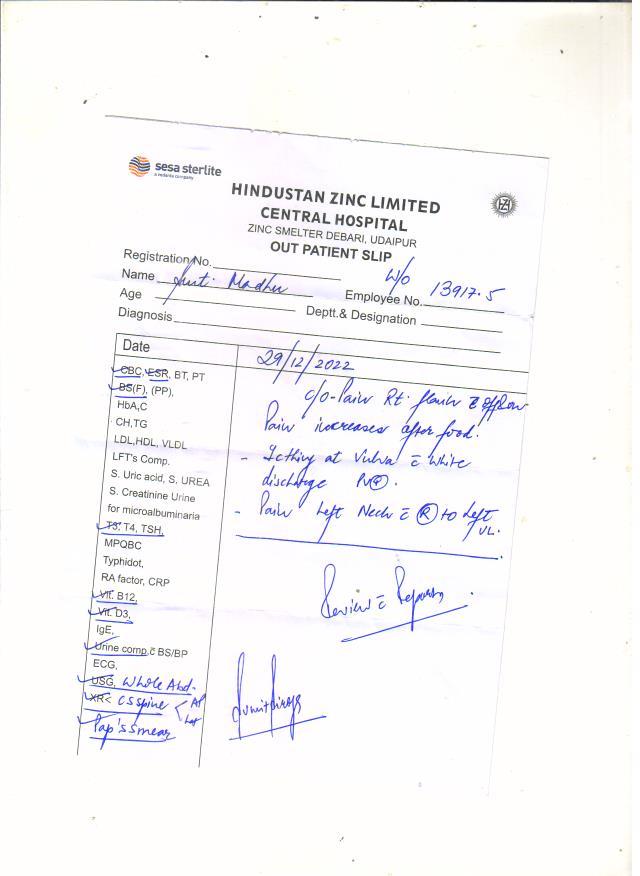 sesa sterlite
a vedanta company
HZL
HINDUSTAN ZINC LIMITED
CENTRAL HOSPITAL
ZINC SMELTER DEBARI, UDAIPUR
OUT PATIENT SLIP
Registration No.
Name Smt. Madhu W/o Employee No. 13917.5
Age Deptt.& Designation
Diagnosis
Date 29/12/2022
CBC, ESR, BT, PT
BS(F), (PP),
HbA,C
CH,TG
LDL,HDL, VLDL
LFT's Comp.
S. Uric acid, S. UREA
S. Creatinine Urine
for microalbuminaria
T3. T4, TSH,
MPQBC
Typhidot,
RA factor, CRP
Vit. B12,
Vit. D3,
IgE,
Urine comp.c̄ BS/BP
ECG,
USG, Whole Abd.
XR< CS spine < AP
Lat
Pap's smear
c/o - Pain Rt. flank c̄
Pain increases after food.
- Itching at Vulva c̄ white
discharge P/V ⊕.
- Pain Left Neck c̄ Ⓡ to Left
UL.
Review c̄ Reports